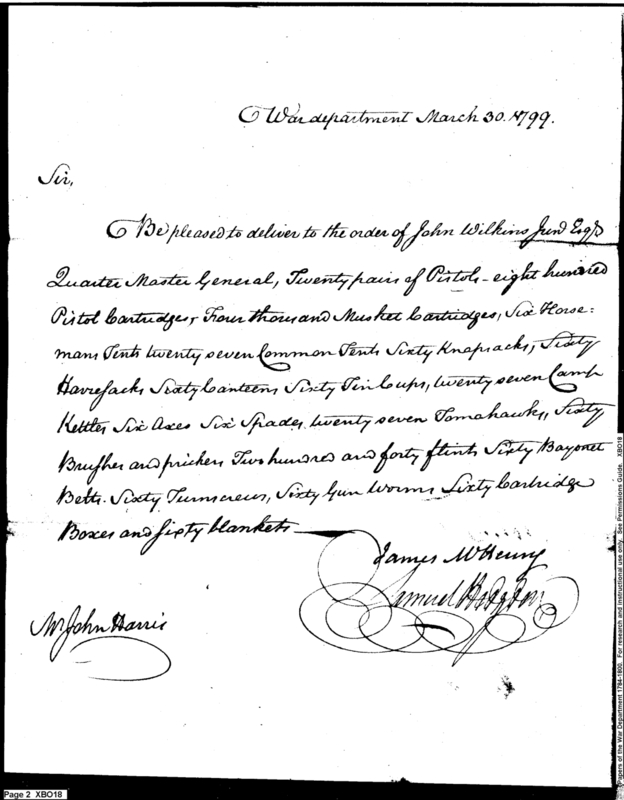 War department March 30. 1799.
Sir,
Be pleased to deliver to the order of John Wilkins Junr Esqr
Quarter Master General, Twenty pairs of Pistols - eight hundred
Pistol Cartridges, Four thousand Musket Cartridges, Six Horse=
mans Tents twenty seven Common Tents Sixty Knapsacks, Sixty
Haversacks Sixty Canteens Sixty Tin Cups, twenty seven Camp
Kettles Six Axes Six Spades, twenty seven Tomahawks, Sixty
Brushes and prickers Two hundred and forty flints Sixty Bayonet
Belts. Sixty Turnscrews, Sixty Gun Worms Sixty Cartridge
Boxes and sixty blankets
James McHenry
Samuel Hodgdon
Mr John Harris
Page 2 XBO18
Papers of the War Department 1784-1800. For research and instructional use only. See Permissions Guide. XBO18